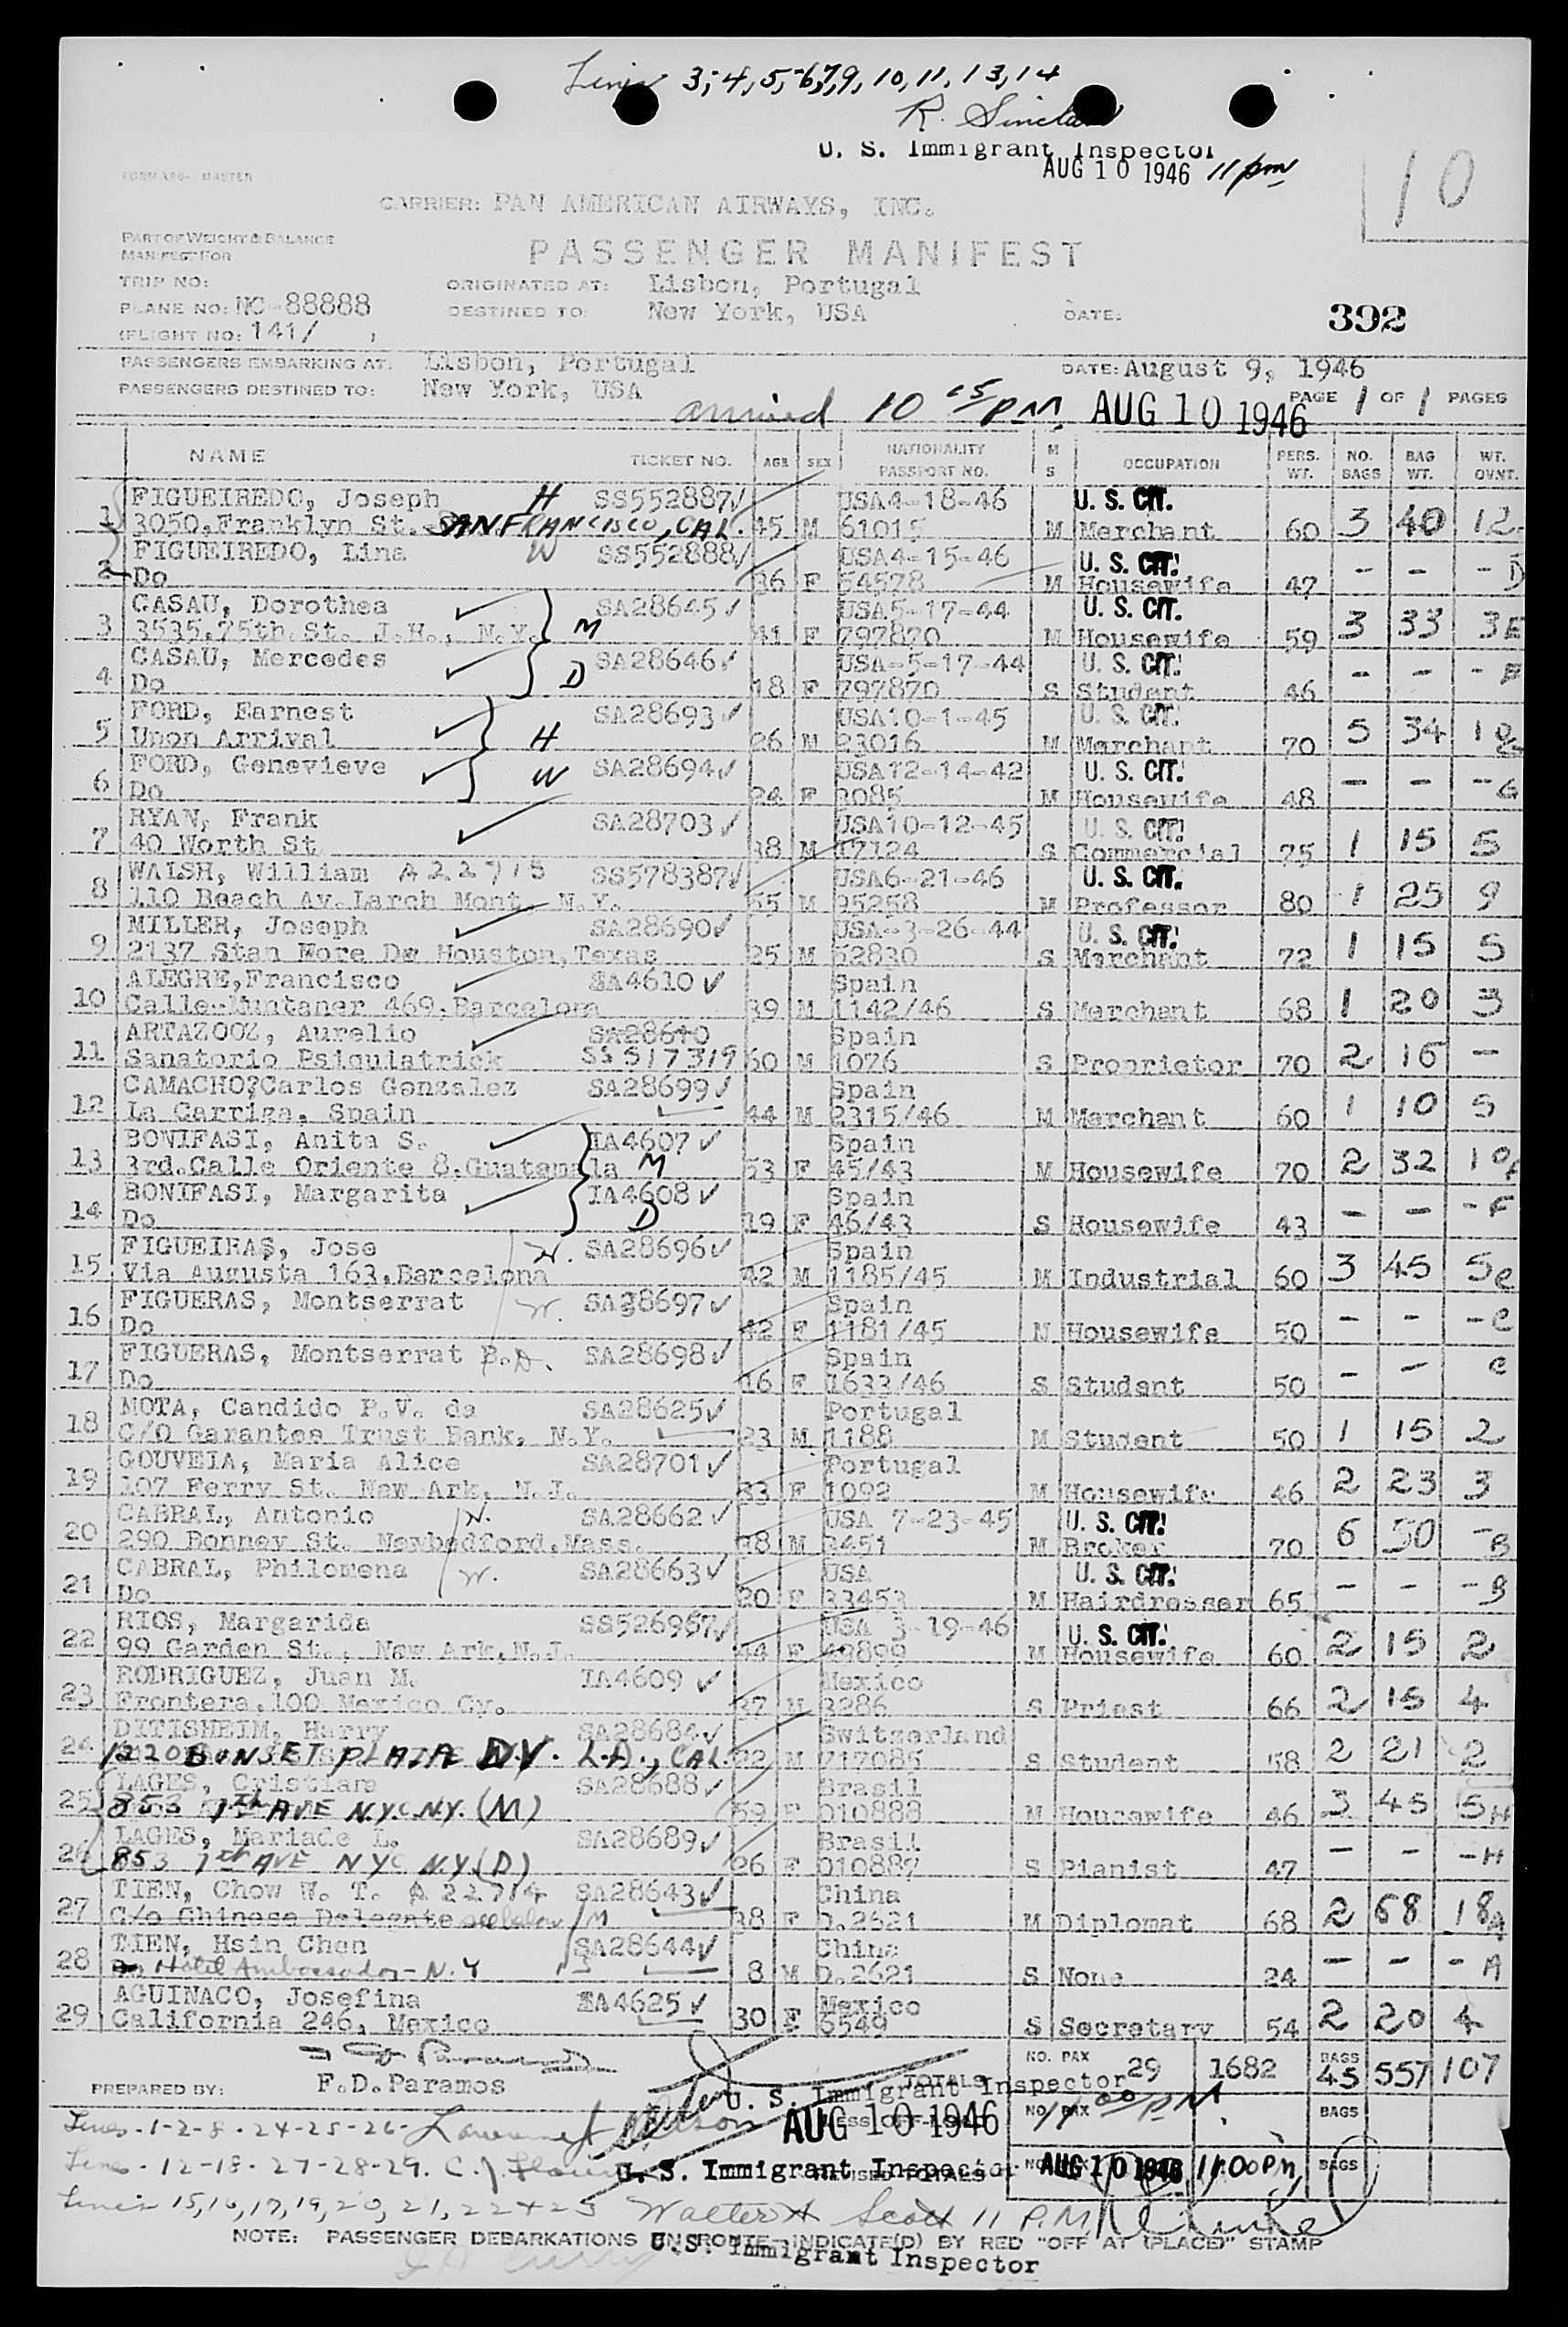 Lines 3,-4,5,-6,7,9,10,11,13,14
R. Sinclair
U. S. Immigrant Inspector
AUG 10 1946 11 pm
10
CARRIER: PAN AMERICAN AIRWAYS, INC.
PART OF WEIGHT & BALANCE
MANIFEST FOR
PASSENGER MANIFEST
TRIP NO:
ORIGINATED AT: Lisbon, Portugal
PLANE NO: NC-88888
DESTINED TO: New York, USA
DATE:
392
(FLIGHT NO: 141/ )
PASSENGERS EMBARKING AT: Lisbon, Portugal
DATE: August 9, 1946
PASSENGERS DESTINED TO: New York, USA
PAGE 1 OF 1 PAGES
arrived 10 15 PM. AUG 10 1946
NAME TICKET NO. AGE SEX NATIONALITY PASSPORT NO. M S OCCUPATION PERS. WT. NO. BAGS BAG WT. WT. OVNT.
FIGUEIREDO, Joseph H SS552887 USA4-18-46 U. S. CIT.
1 3050,Franklyn St. SAN FRANCISCO, CAL. 45 M 61015 M Merchant 60 3 40 12
FIGUEIREDO, Lina W SS552888 USA4-15-46 U. S. CIT.
2 Do 36 F 54578 M Housewife 47 - - - D
CASAU, Dorothea SA28645 USA5-17-44 U. S. CIT.
3 3535,75th.St. J.H., N.Y. M 41 F 797870 M Housewife 59 3 33 3E
CASAU, Mercedes SA28646 USA-5-17-44 U. S. CIT.
4 Do D 18 F 797870 S Student 46 - - - E
FORD, Earnest SA28693 USA10-1-45 U. S. CIT.
5 Upon Arrival H 26 M 23016 M Merchant 70 5 34 10G
FORD, Genevieve W SA28694 USA12-14-42 U. S. CIT.
6 Do 24 F 3085 M Housewife 48 - - - G
RYAN, Frank SA28703 USA10-12-45 U. S. CIT.
7 40 Worth St 38 M 17124 S Commercial 75 1 15 5
WALSH, William A22715 SS578387 USA6-21-46 U. S. CIT.
8 110 Beach Av.Larch Mont, N.Y. 55 M 95258 M Professor 80 1 25 9
MILLER, Joseph SA28690 USA-3-26-44 U. S. CIT.
9 2137 Stan More Dr Houston,Texas 25 M 52830 S Merchant 72 1 15 5
ALEGRE,Francisco IA4610 Spain
10 Calle-Muntaner 469,Barcelona 39 M 1142/46 S Merchant 68 1 20 3
ARTAZOOZ, Aurelio SA28610 Spain
11 Sanatorio Psiquiatrick SS 517319 60 M 1076 S Proprietor 70 2 16 -
CAMACHO,Carlos Gonzalez SA28699 Spain
12 La Garriga, Spain 44 M 2315/46 M Merchant 60 1 10 5
BONIFASI, Anita S. IA4607 Spain
13 3rd.Calle Oriente 8,Guatemala M 53 F 45/43 M Housewife 70 2 32 10F
BONIFASI, Margarita IA4608 Spain
14 Do D 19 F 46/43 S Housewife 43 - - - F
FIGUEIRAS, Jose H. SA28696 Spain
15 Via Augusta 163,Barcelona 42 M 1185/45 M Industrial 60 3 45 5 C
FIGUERAS, Montserrat W. SA28697 Spain
16 Do 42 F 1181/45 M Housewife 50 - - - C
FIGUERAS, Montserrat B.D. SA28698 Spain
17 Do 16 F 1633/46 S Student 50 - - C
MOTA, Candido P.V. da SA28625 Portugal
18 C/O Garantee Trust Bank, N.Y. 23 M 1188 M Student 50 1 15 2
GOUVEIA, Maria Alice SA28701 Portugal
19 107 Ferry St. New Ark, N.J. 33 F 1092 M Housewife 46 2 23 3
CABRAL, Antonio H. SA28662 USA 7-23-45 U. S. CIT.
20 290 Bonney St. Newbedford,Mass. 38 M 3451 M Broker 70 6 50 - B
CABRAL, Philomena W. SA28663 USA U. S. CIT.
21 Do 20 F 33453 M Hairdresser 65 - - - B
RIOS, Margarida SS526967 USA 3-19-46 U. S. CIT.
22 99 Garden St., New Ark,N.J. 44 F 49899 M Housewife 60 2 15 2
RODRIGUEZ, Juan M. IA4609 Mexico
23 Frontera,100 Mexico Cy. 37 M 3286 S Priest 66 2 15 4
DITISHEIM, Harry SA28684 Switzerland
24 1220 SUNSET PLAZA DV. L.A., CAL. 22 M 717085 S Student 58 2 21 2
LAGES, Cristiane SA28688 Brasil
25 853 7th AVE N.Y.C. N.Y. (M) 59 F 010888 M Housewife 46 3 45 5 H
LAGES, Mariade L. SA28689 Brasil
26 853 7th AVE NYC N.Y. (D) 26 F 010887 S Pianist 47 - - - H
TIEN, Chow W. T. A22714 SA28643 China
27 C/o Chinese Delegate see below M 38 F D.2621 M Diplomat 68 2 68 18A
TIEN, Hsin Chen SA28644 China
28 Do Hotel Ambassador - N.Y S 8 M D.2621 S None 24 - - - A
AGUINACO, Josefina IA4625 Mexico
29 California 246, Mexico 30 F 6549 S Secretary 54 2 20 4
TOTALS NO. PAX 29 1682 BAGS 45 557 107
PREPARED BY: F.D.Paramos
U. S. Immigrant Inspector
AUG 10 1946
LESS OFF-LOAD NO. PAX 11 00 PM BAGS
Lines-1-2-8-24-25-26-
Lines-12-18-27-28-29. C. J.
U. S. Immigrant Inspector
REVISED TOTALS AUG 10 1946 11:00 PM BAGS
Lines 15,16,17,19,20,21,22+23 Walter H Scott 11 P.M.
NOTE: PASSENGER DEBARKATIONS EN ROUTE INDICATE(D) BY RED "OFF AT (PLACE)" STAMP
U.S. Immigrant Inspector